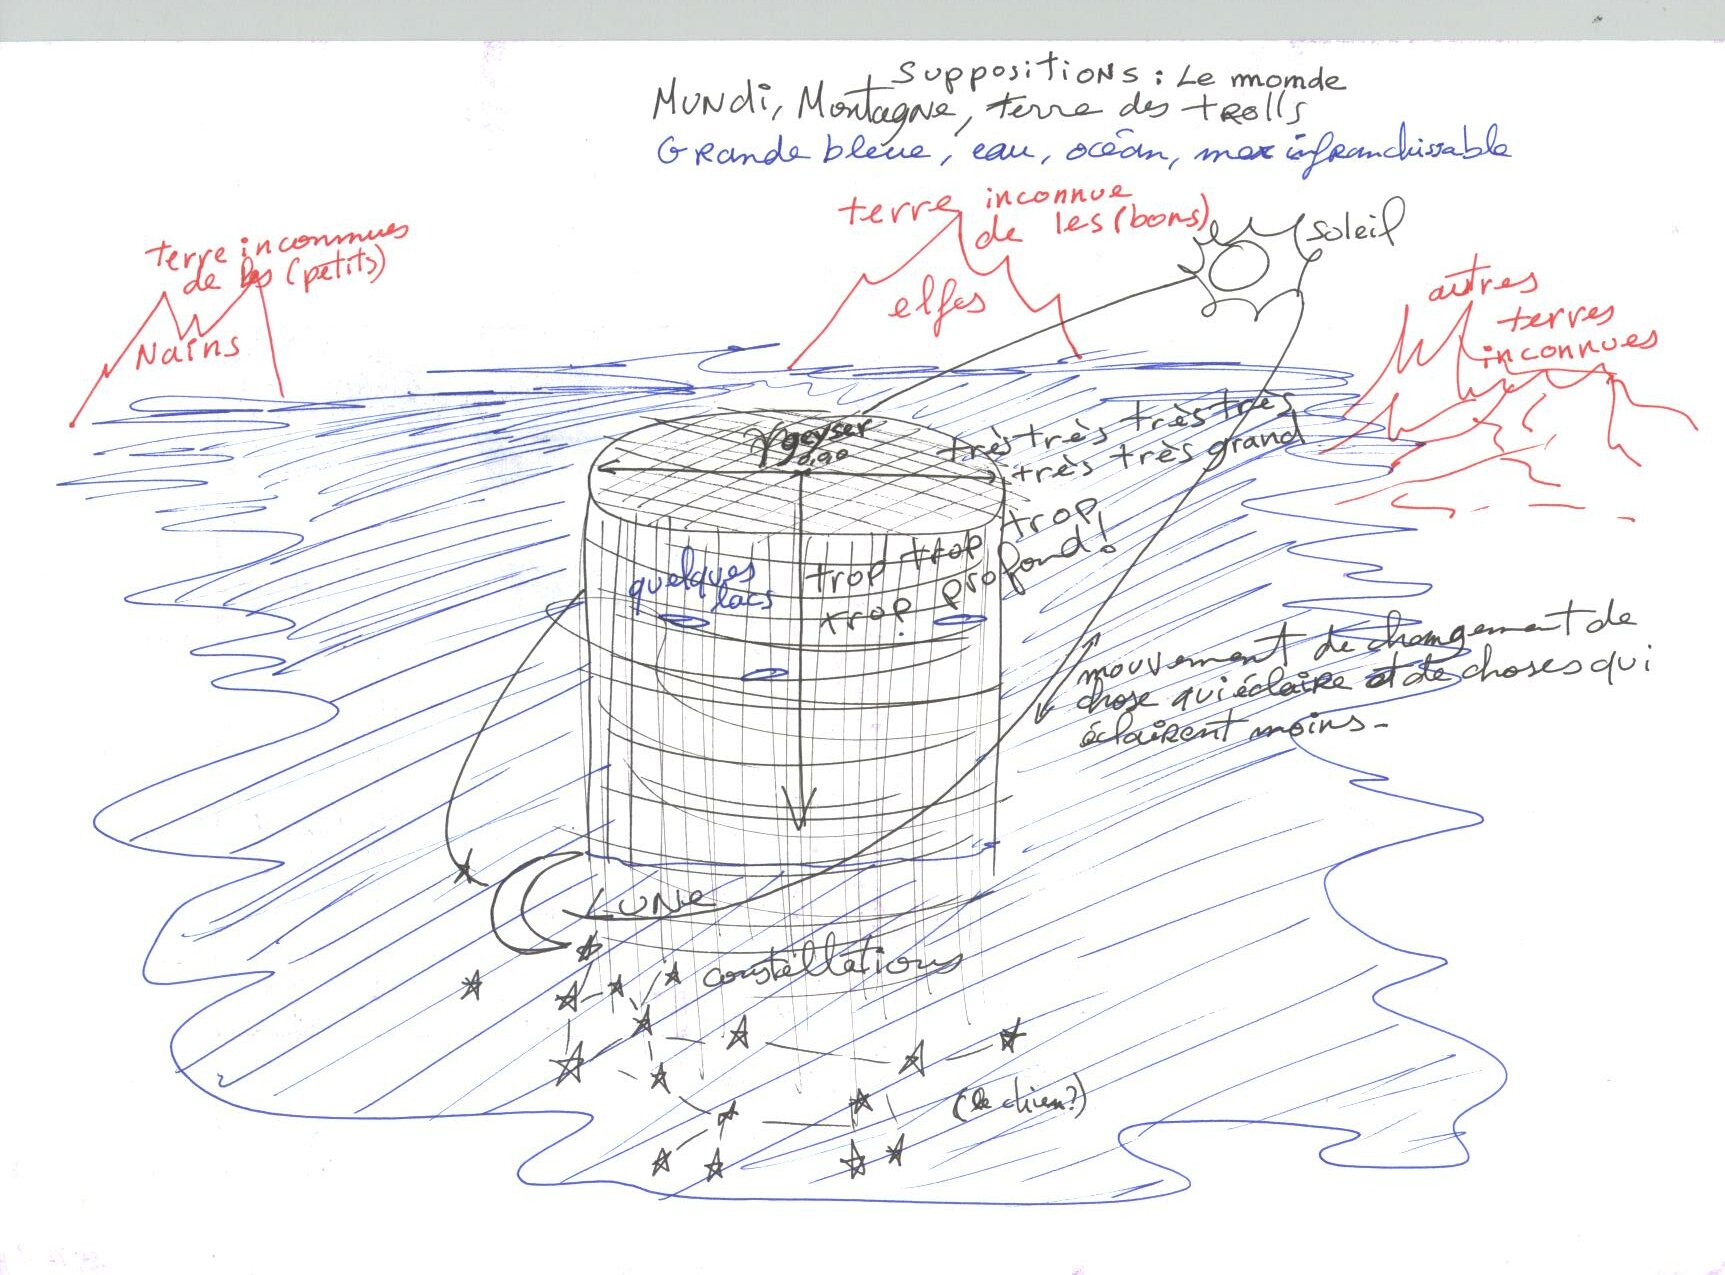 Suppositions : Le monde
Mundi, Montagne, terre des trolls
Grande bleue, eau, océan, mer infranchissable
terre inconnue
de les (bons)
elfes
soleil
terre inconnues
de les (petits)
Nains
autres
terres
inconnues
geyser
0,90
très très très très
très très grand
trop trop trop
trop profond!
quelques
lacs
mouvement de changement de
chose qui éclaire et de choses qui
éclairent moins -
Lune
constéllations
(le chien?)